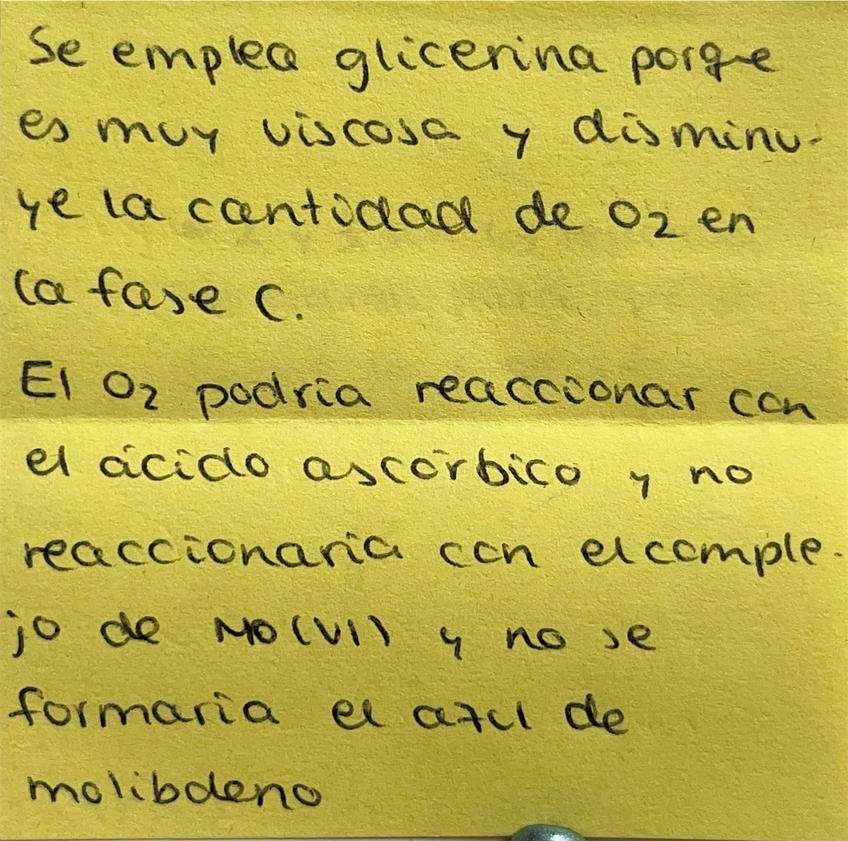 Se emplea glicerina porque
es muy viscosa y disminu-
ye la cantidad de O2 en
la fase C.
El O2 podría reaccionar con
el ácido ascórbico y no
reaccionaría con el comple-
jo de Mo(VI) y no se
formaría el azul de
molibdeno